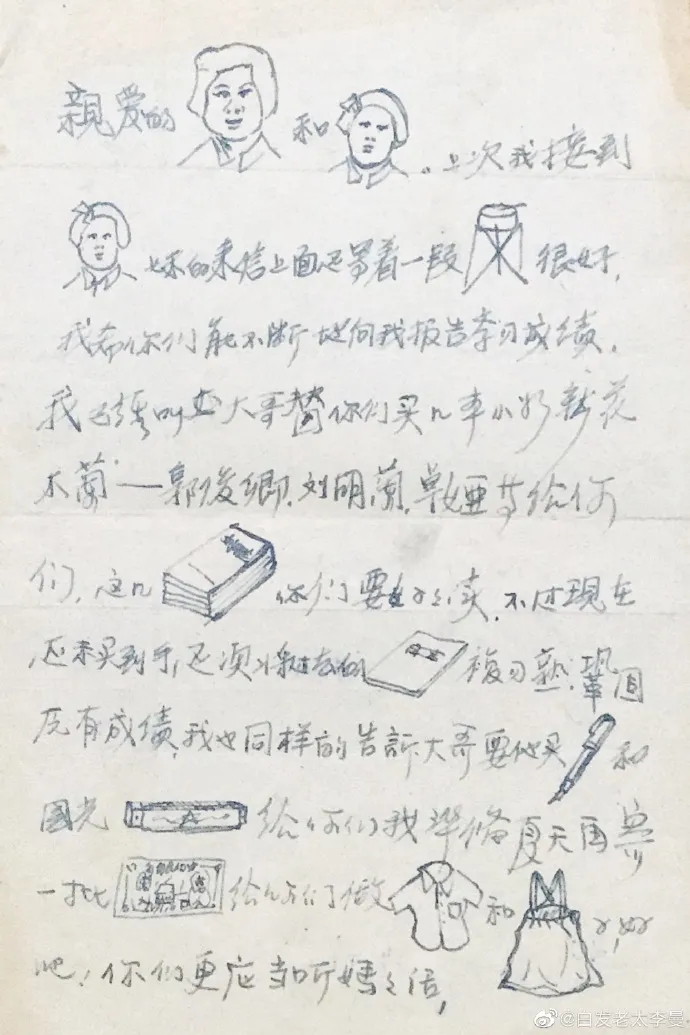 亲爱的 和 。上次我接到
妹的来信上面还写着一段 很好,
我希你们能不断地向我报告学习成绩.
我已经叫 大哥替你们买几本小 花
木兰——郭俊卿.刘胡兰.卓娅等给你
们,这几 你们要好好读,不过现在
还未买到手,还须将过去的 複习熟.巩固
原有成绩,我也同样的告訴大哥要他买 和
国光 给你们我準备夏天再寄
一批 给你们做 和 好
吧!你们更应当听妈妈话,
@白发老太李曼